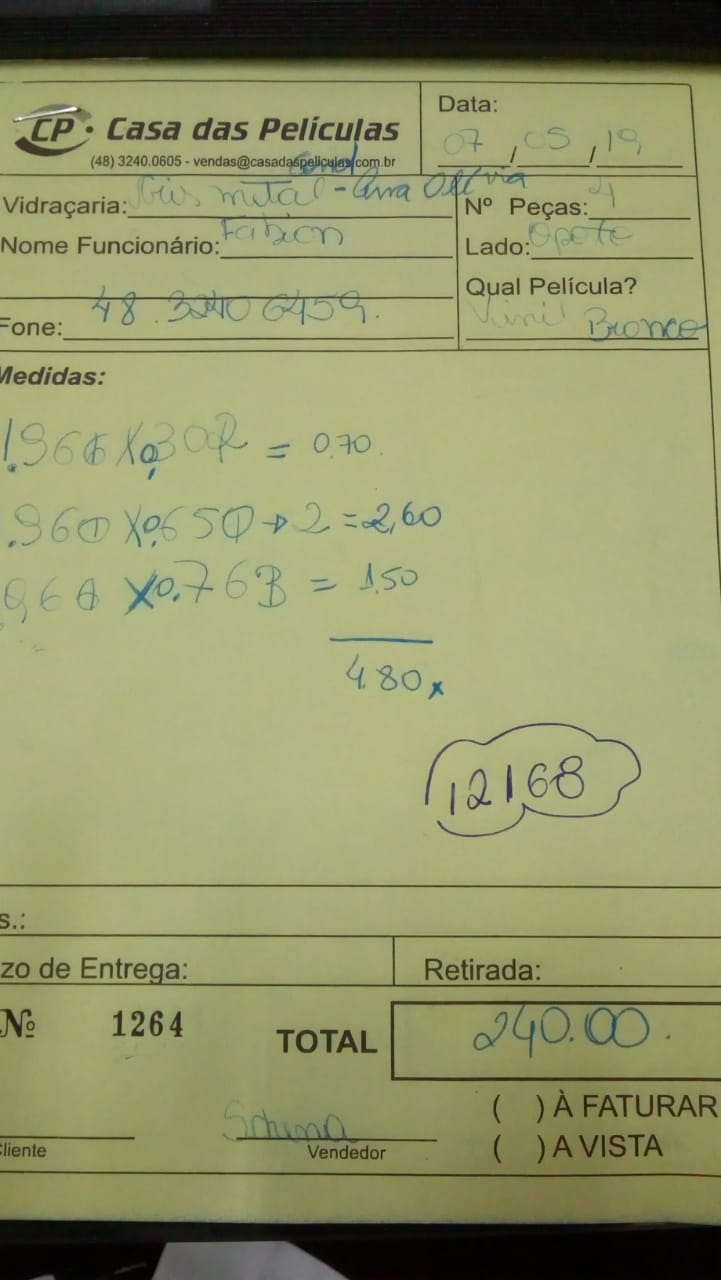 CP · Casa das Películas
(48) 3240.0605 - vendas@casadaspeliculas.com.br
Data:
07 / 05 / 19
Vidraçaria: metal - Cond Ana Olivia
Nº Peças: 4
Nome Funcionário: Fabion
Lado:
Qual Película?
Fone: 48.3340 6459.
Vinil Branco
Medidas:
1.966 X 0,302 = 0.70.
.960 X 0.650 → 2 = 2,60
.966 X 0.763 = 1.50
4.80 x
12168
s.:
zo de Entrega:
Retirada:
Nº 1264
TOTAL 240.00.
( ) À FATURAR
( ) A VISTA
Cliente
Vendedor